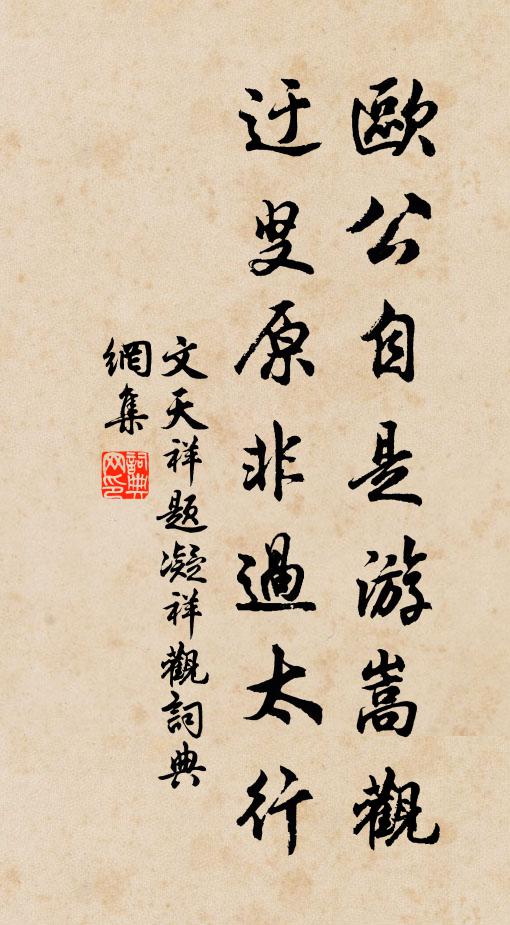 歐公自是游嵩觀
迂叟原非過太行
文天祥題凝祥觀詞典
網集
詞典
网印